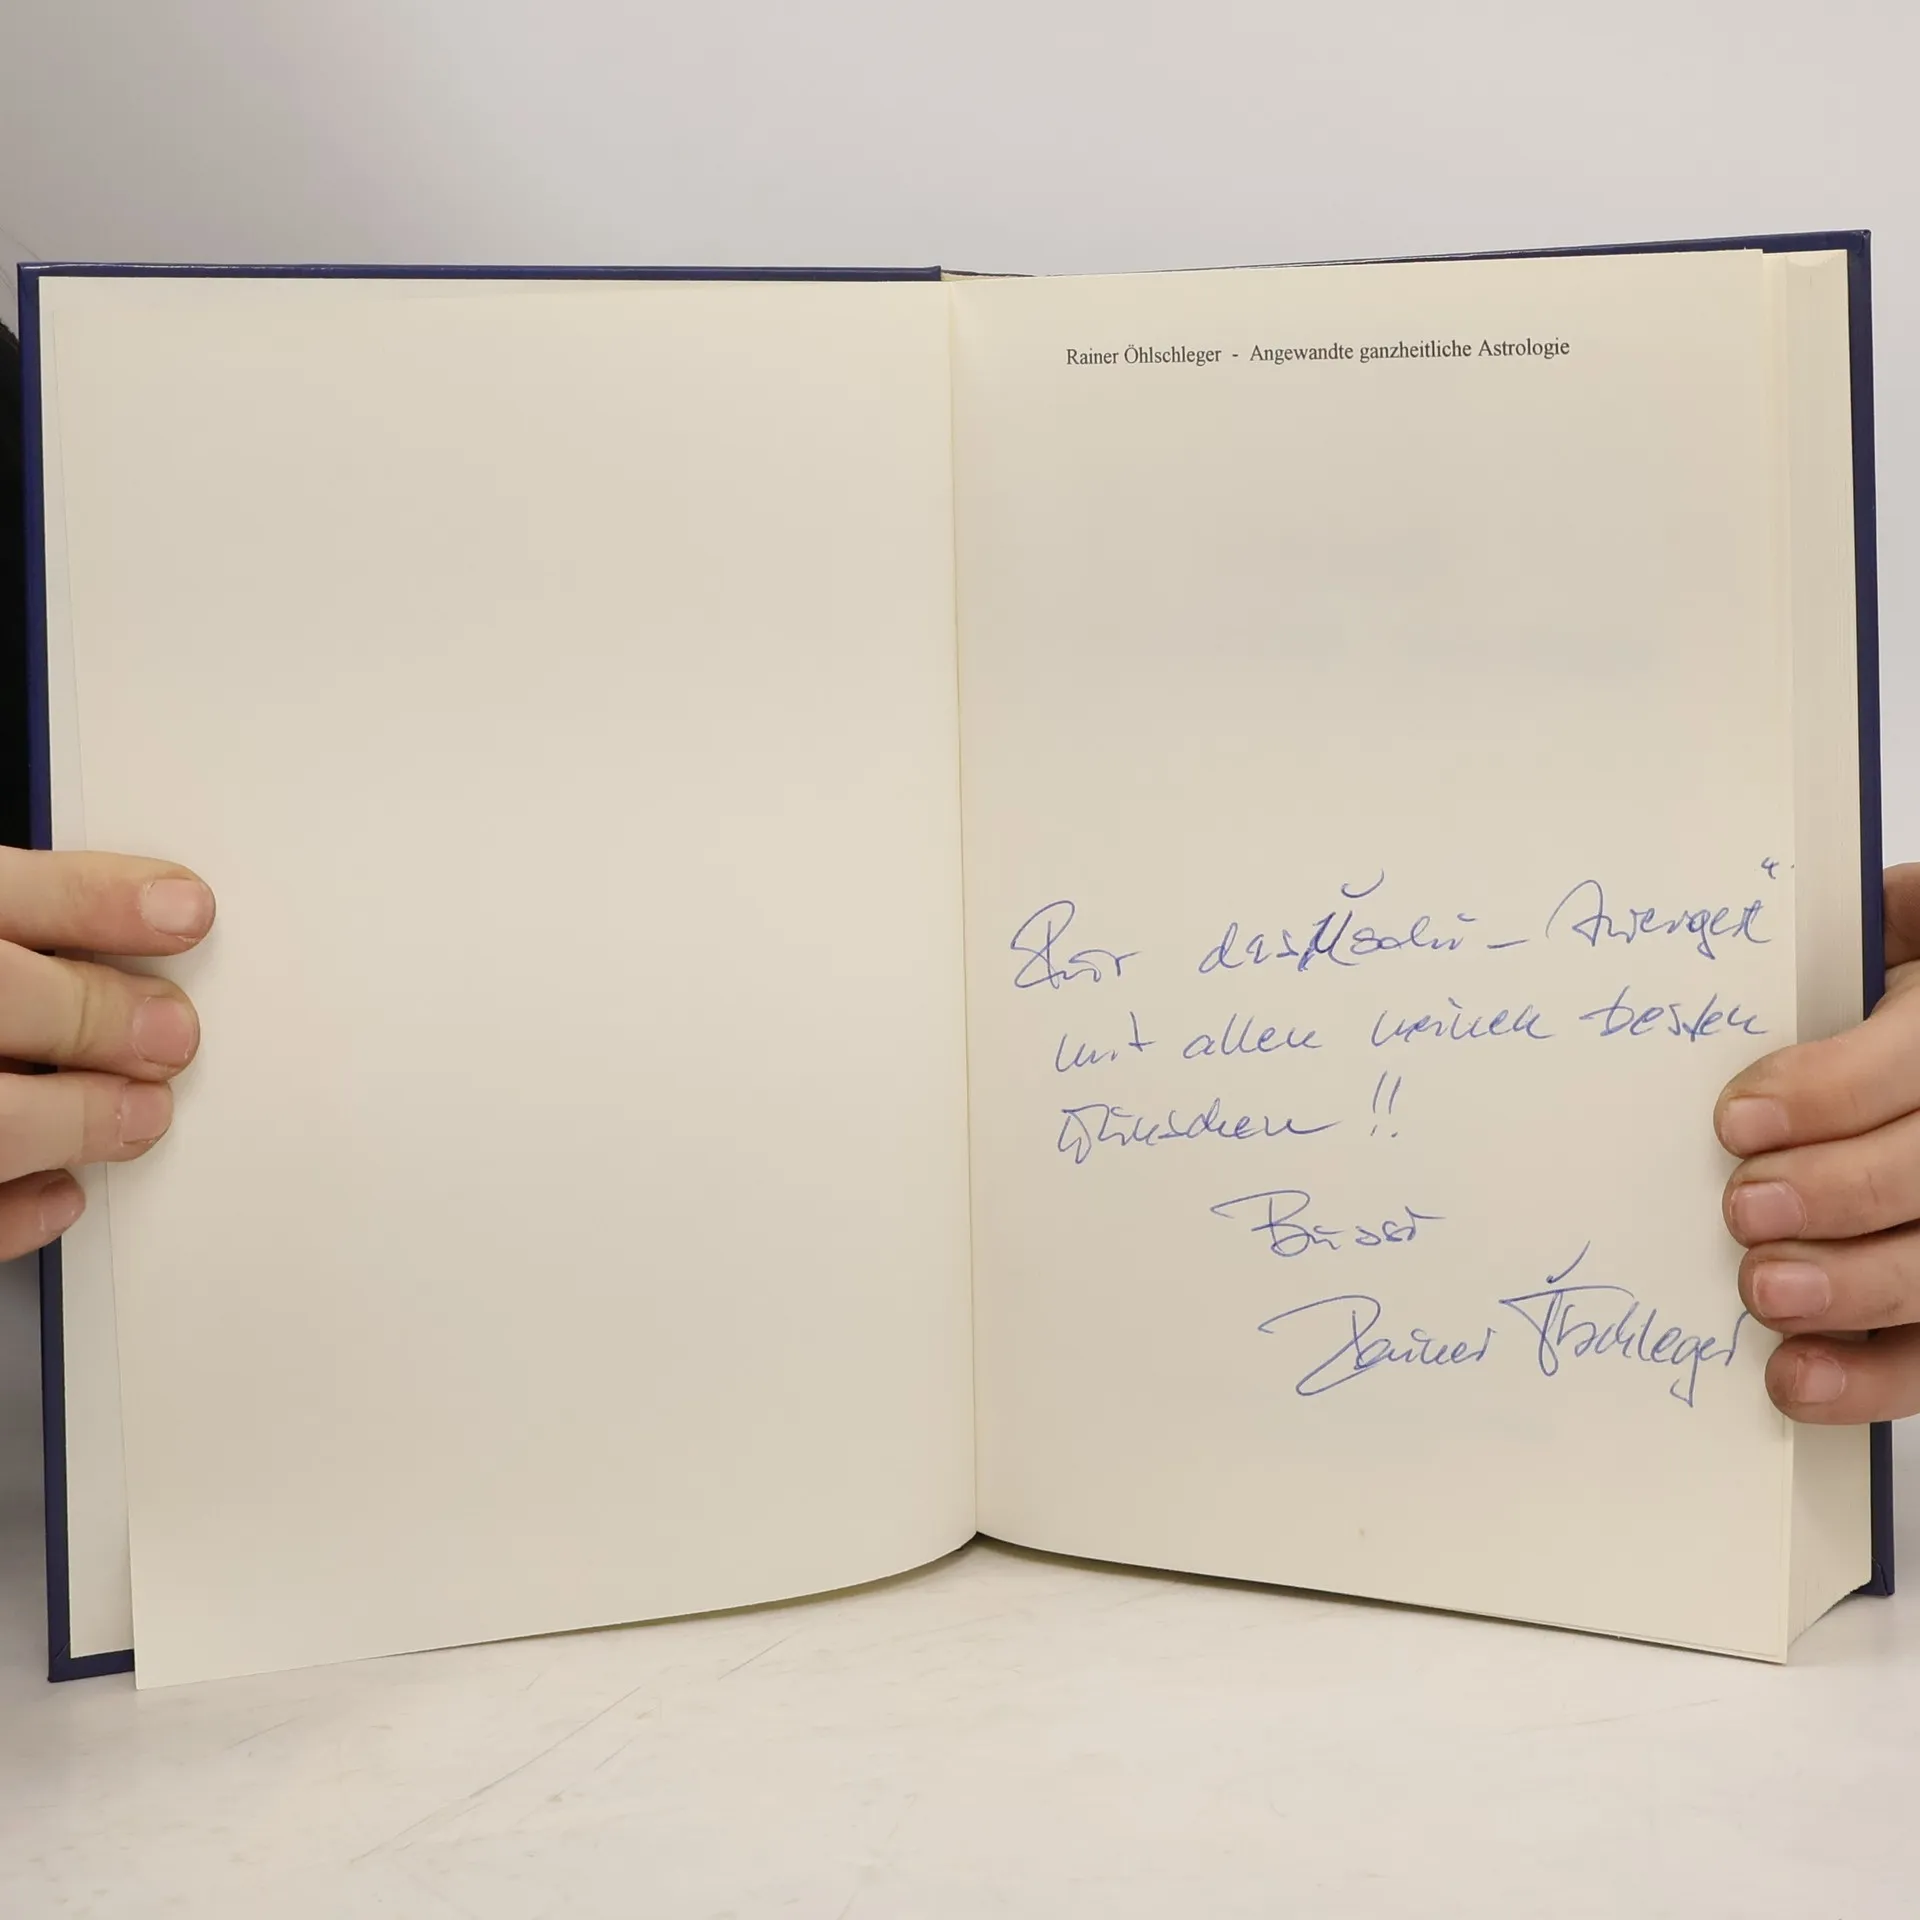 Rainer Öhlschleger - Angewandte ganzheitliche Astrologie
Für das „Uschi - Zwergerl“
mit allen meinen besten
Wünschen !!
Bussi
Rainer Öhlschleger